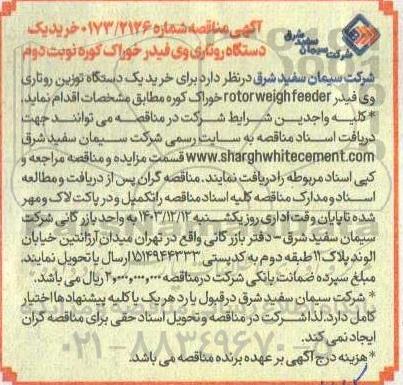 آگهی مناقصه شماره ۰۱۷۳/۲۱۲۶ خرید یک
دستگاه روتاری وی فیدر خوراک کوره نوبت دوم
شرکت
سیمان سفید شرق
شرکت سیمان سفید شرق در نظر دارد برای خرید یک دستگاه توزین روتاری
وی فیدر rotor weigh feeder خوراک کوره مطابق مشخصات اقدام نماید.
*کلیه واجدین شرایط شرکت در مناقصه می توانند جهت
دریافت اسناد مناقصه به سایت رسمی شرکت سیمان سفید شرق
www.sharghwhitecement.com قسمت مزایده و مناقصه مراجعه و
کپی اسناد مربوطه را دریافت نمایند. مناقصه گران پس از دریافت و مطالعه
اسناد و مدارک مناقصه کلیه اسناد مناقصه را تکمیل و در پاکت لاک و مهر
شده تا پایان وقت اداری روز یکشنبه ۱۴۰۳/۱۲/۱۲ به واحد بازرگانی شرکت
سیمان سفید شرق - دفتر بازرگانی واقع در تهران میدان آرژانتین خیابان
الوند پلاک ۱۱ طبقه دوم به کدپستی ۱۵۱۴۹۴۴۳۳۳ ارسال یا تحویل نمایند.
مبلغ سپرده ضمانت بانکی شرکت در مناقصه ۲,۰۰۰,۰۰۰,۰۰۰ ریال می باشد.
* شرکت سیمان سفید شرق در قبول یا رد هر یک یا کلیه پیشنهادها اختیار
کامل دارد. لذا شرکت در مناقصه و تحویل اسناد حقی برای مناقصه گران
ایجاد نمی کند.
*هزینه درج آگهی بر عهده برنده مناقصه می باشد.
۰۲۱-۸۸۳۴۹۶۷۰-۵